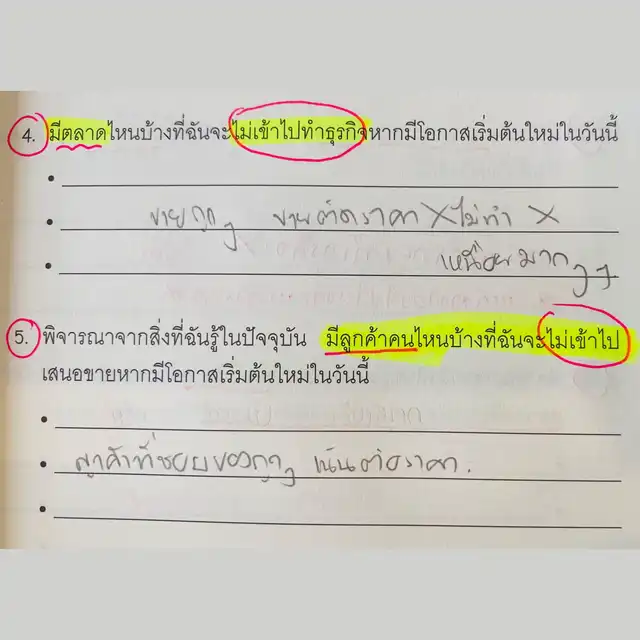 4. มีตลาดไหนบ้างที่ฉันจะไม่เข้าไปทำธุรกิจหากมีโอกาสเริ่มต้นใหม่ในวันนี้
ขายถูกๆ ขายตัดราคา X ไม่ทำ X
เหนื่อยมากๆๆ
5. พิจารณาจากสิ่งที่ฉันรู้ในปัจจุบัน มีลูกค้าคนไหนบ้างที่ฉันจะไม่เข้าไป
เสนอขายหากมีโอกาสเริ่มต้นใหม่ในวันนี้
ลูกค้าที่ชอบของถูกๆ เน้นต่อราคา.